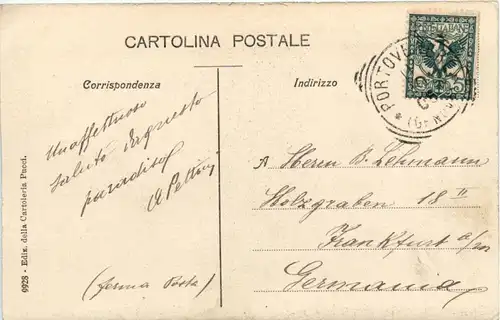 CARTOLINA POSTALE
Corrispondenza
Indirizzo
Un affettuoso
saluto da questo
paradiso
(ferma Posta)
A Herrn B. Lehmann
Holzgraben 18 II
Frankfurt a/m
Germania
PORTOVE
9928 - Ediz. della Cartoleria Pucci.